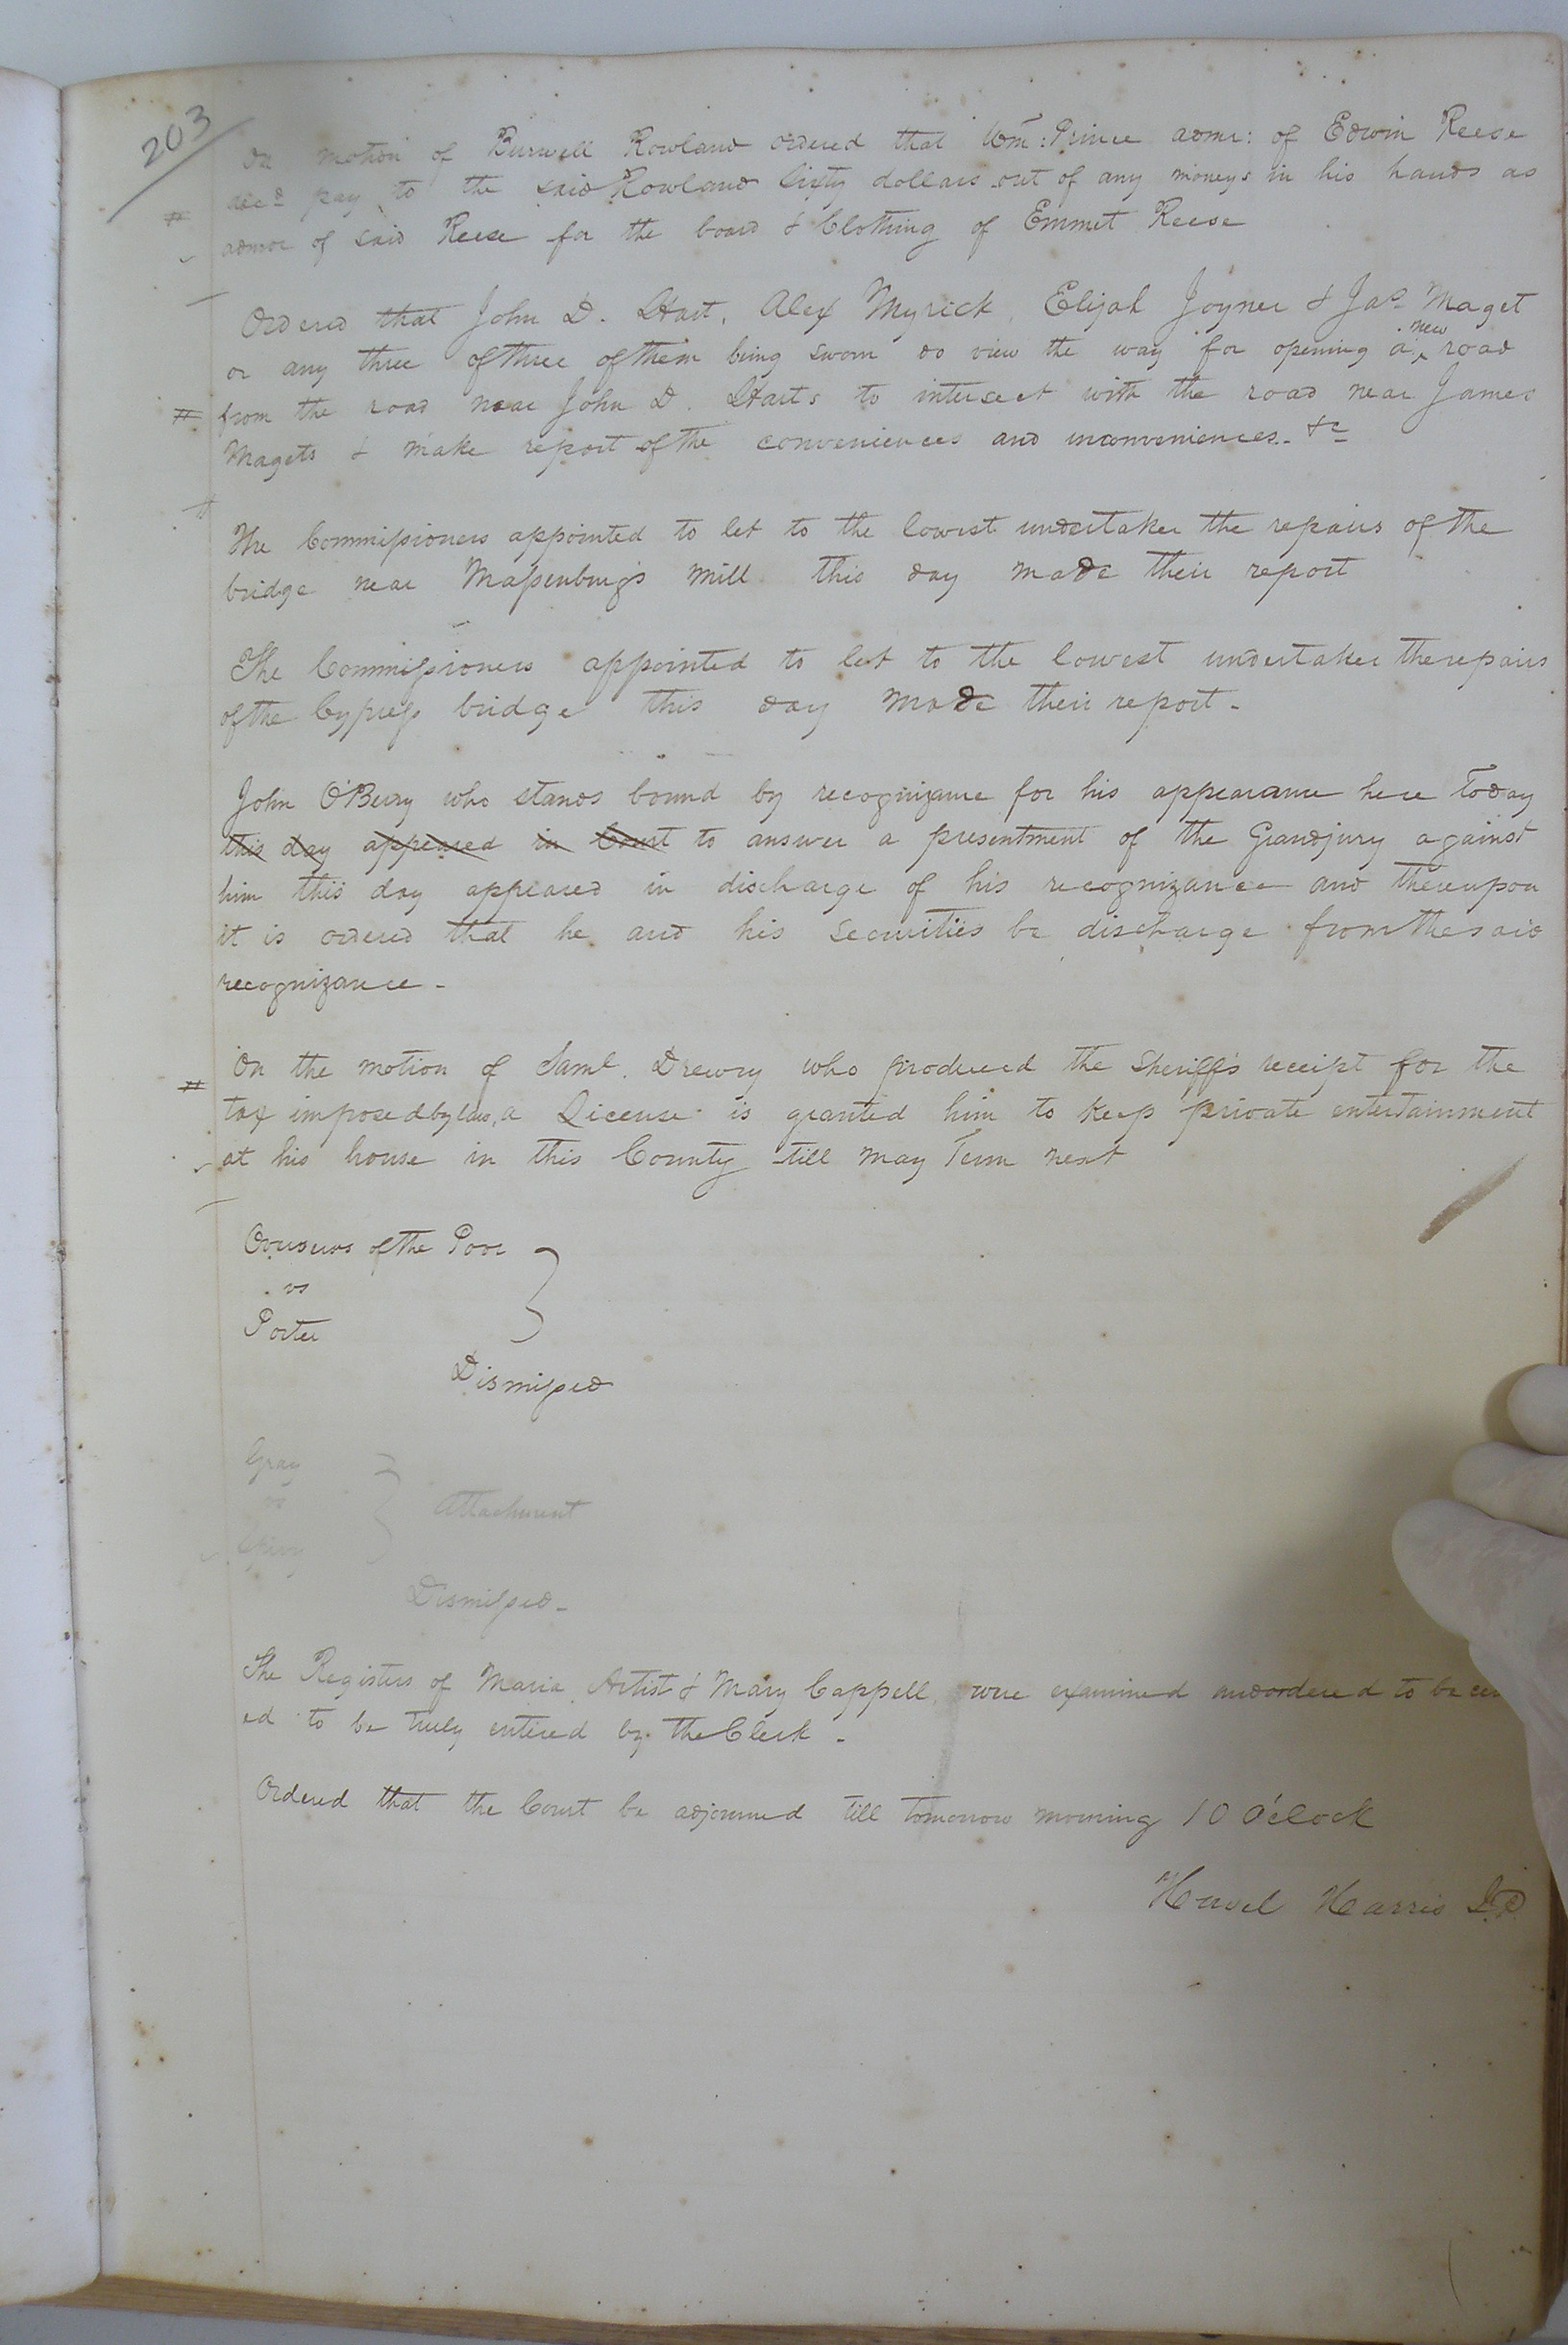 203
On motion of Burwell Rowland ordered that Wm: Prince admr: of Edwin Reese
decd pay to the said Rowland Sixty dollars out of any moneys in his hands as
admor of said Reese for the board & Clothing of Emmet Reese
Ordered that John D. Hart, Alex Myrick, Elijah Joyner & Jas Maget
or any three of three of them being sworn do view the way for opening a new road
from the road near John D. Harts to intersect with the road near James
Magets & make report of the conveniences and inconveniences. &c
The Commissioners appointed to let to the lowest undertaker the repairs of the
bridge near Massenburg's mill this day made their report
The Commissioners appointed to let to the lowest undertaker the repairs
of the Cypress bridge this day made their report -
John O'Berry who stands bound by recognizance for his appearance here Today
this day appeared in Court to answer a presentment of the Grandjury against
him this day appeared in discharge of his recognizance and thereupon
it is ordered that he and his securities be discharge from the said
recognizance -
On the motion of Saml. Drewry who produced the Sheriff's receipt for the
tax imposed by law, a License is granted him to keep private entertainment
at his house in this County till May Term next
Overseers of the Poor
vs
Porter
Dismissed
Gray
vs
Attachment
Dismissed -
The Registers of Maria Artist & Mary Cappell, were examined and ordered to be
ed to be truly entered by the Clerk -
Ordered that the Court be adjourned till tomorrow morning 10 O'clock
Harris